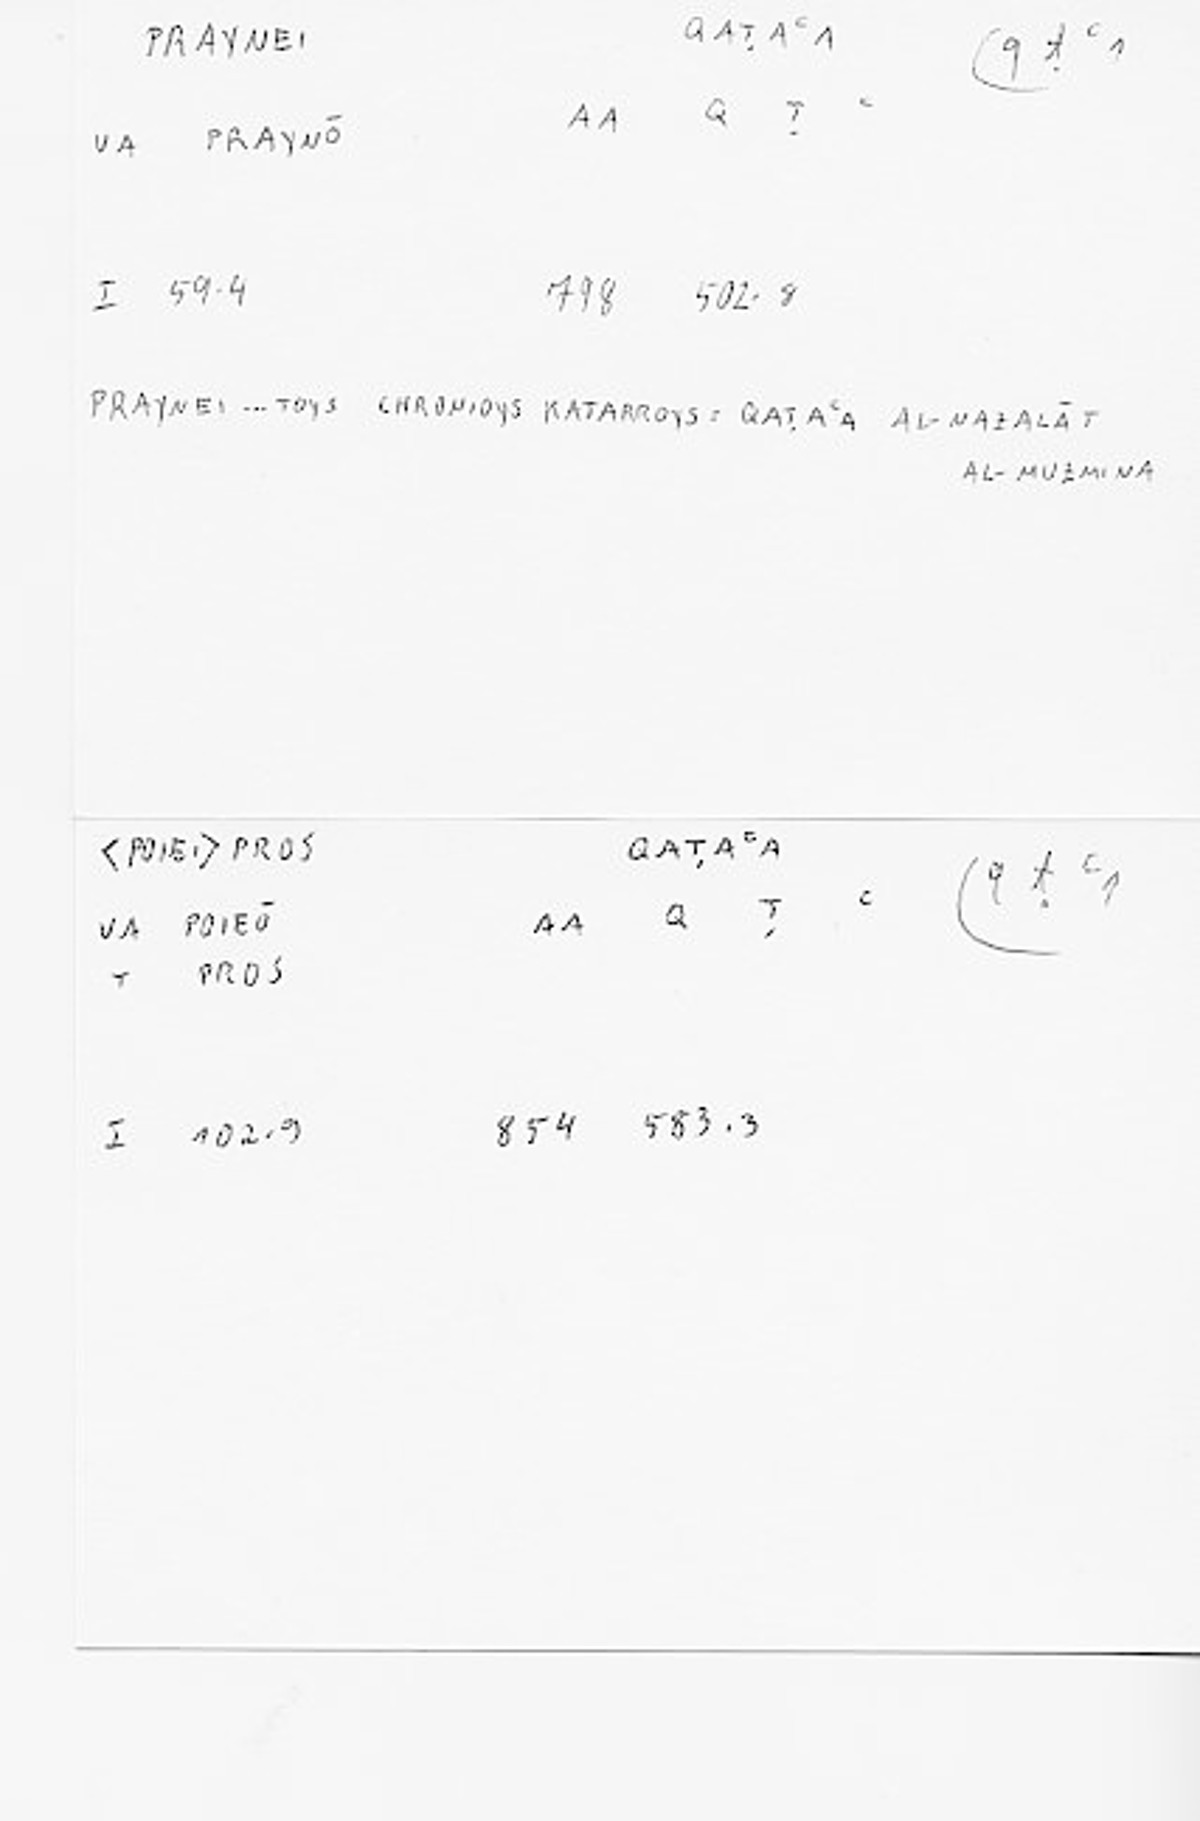 PRAYNEI QAṬAᶜA q ṭ ᶜ 1
VA PRAYNŌ AA Q Ṭ ᶜ
I 59.4 798 502.8
PRAYNEI ... TOYS CHRONIOYS KATARROYS : QAṬAᶜA AL-NAZALĀT
AL-MUZMINA
<POIEI> PROS QAṬAᶜA q ṭ ᶜ 1
VA POIEŌ AA Q Ṭ ᶜ
T PROS
I 102.9 854 583.3